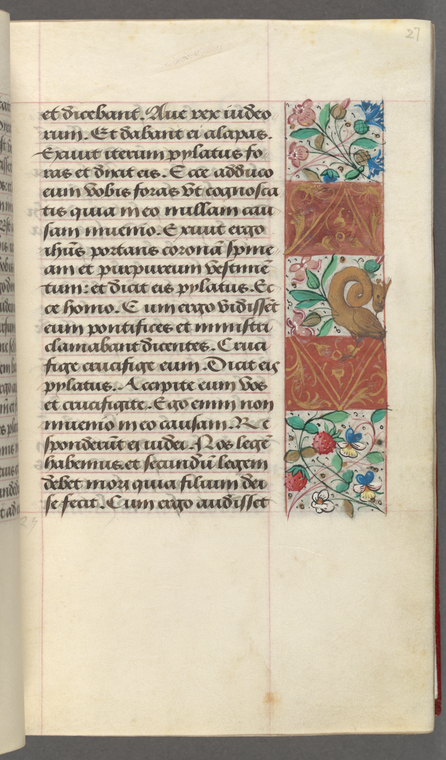 27
et dicebant. Aue rex iudeo
rum. Et dabant ei alapas.
Exiuit iterum pylatus fo
ras et dicit eis. Ecce adduco
eum vobis foras vt cognosca
tis quia in eo nullam cau
sam inuenio. Exiuit ergo
ihūs portans coronā spine
am et purpureum vestime
tum: et dicit eis pylatus. Ec
ce homo. Cum ergo vidisset
eum pontifices et ministri
clamabant dicentes. Cruci
fige crucifige eum. Dicit eis
pylatus. Accipite eum vos
et crucifigite. Ego enim non
inuenio in eo causam. Re
sponderūt ei iudei. Nos legē
habemus et secundū legem
debet mori quia filium dei
se fecit. Cum ergo audisset